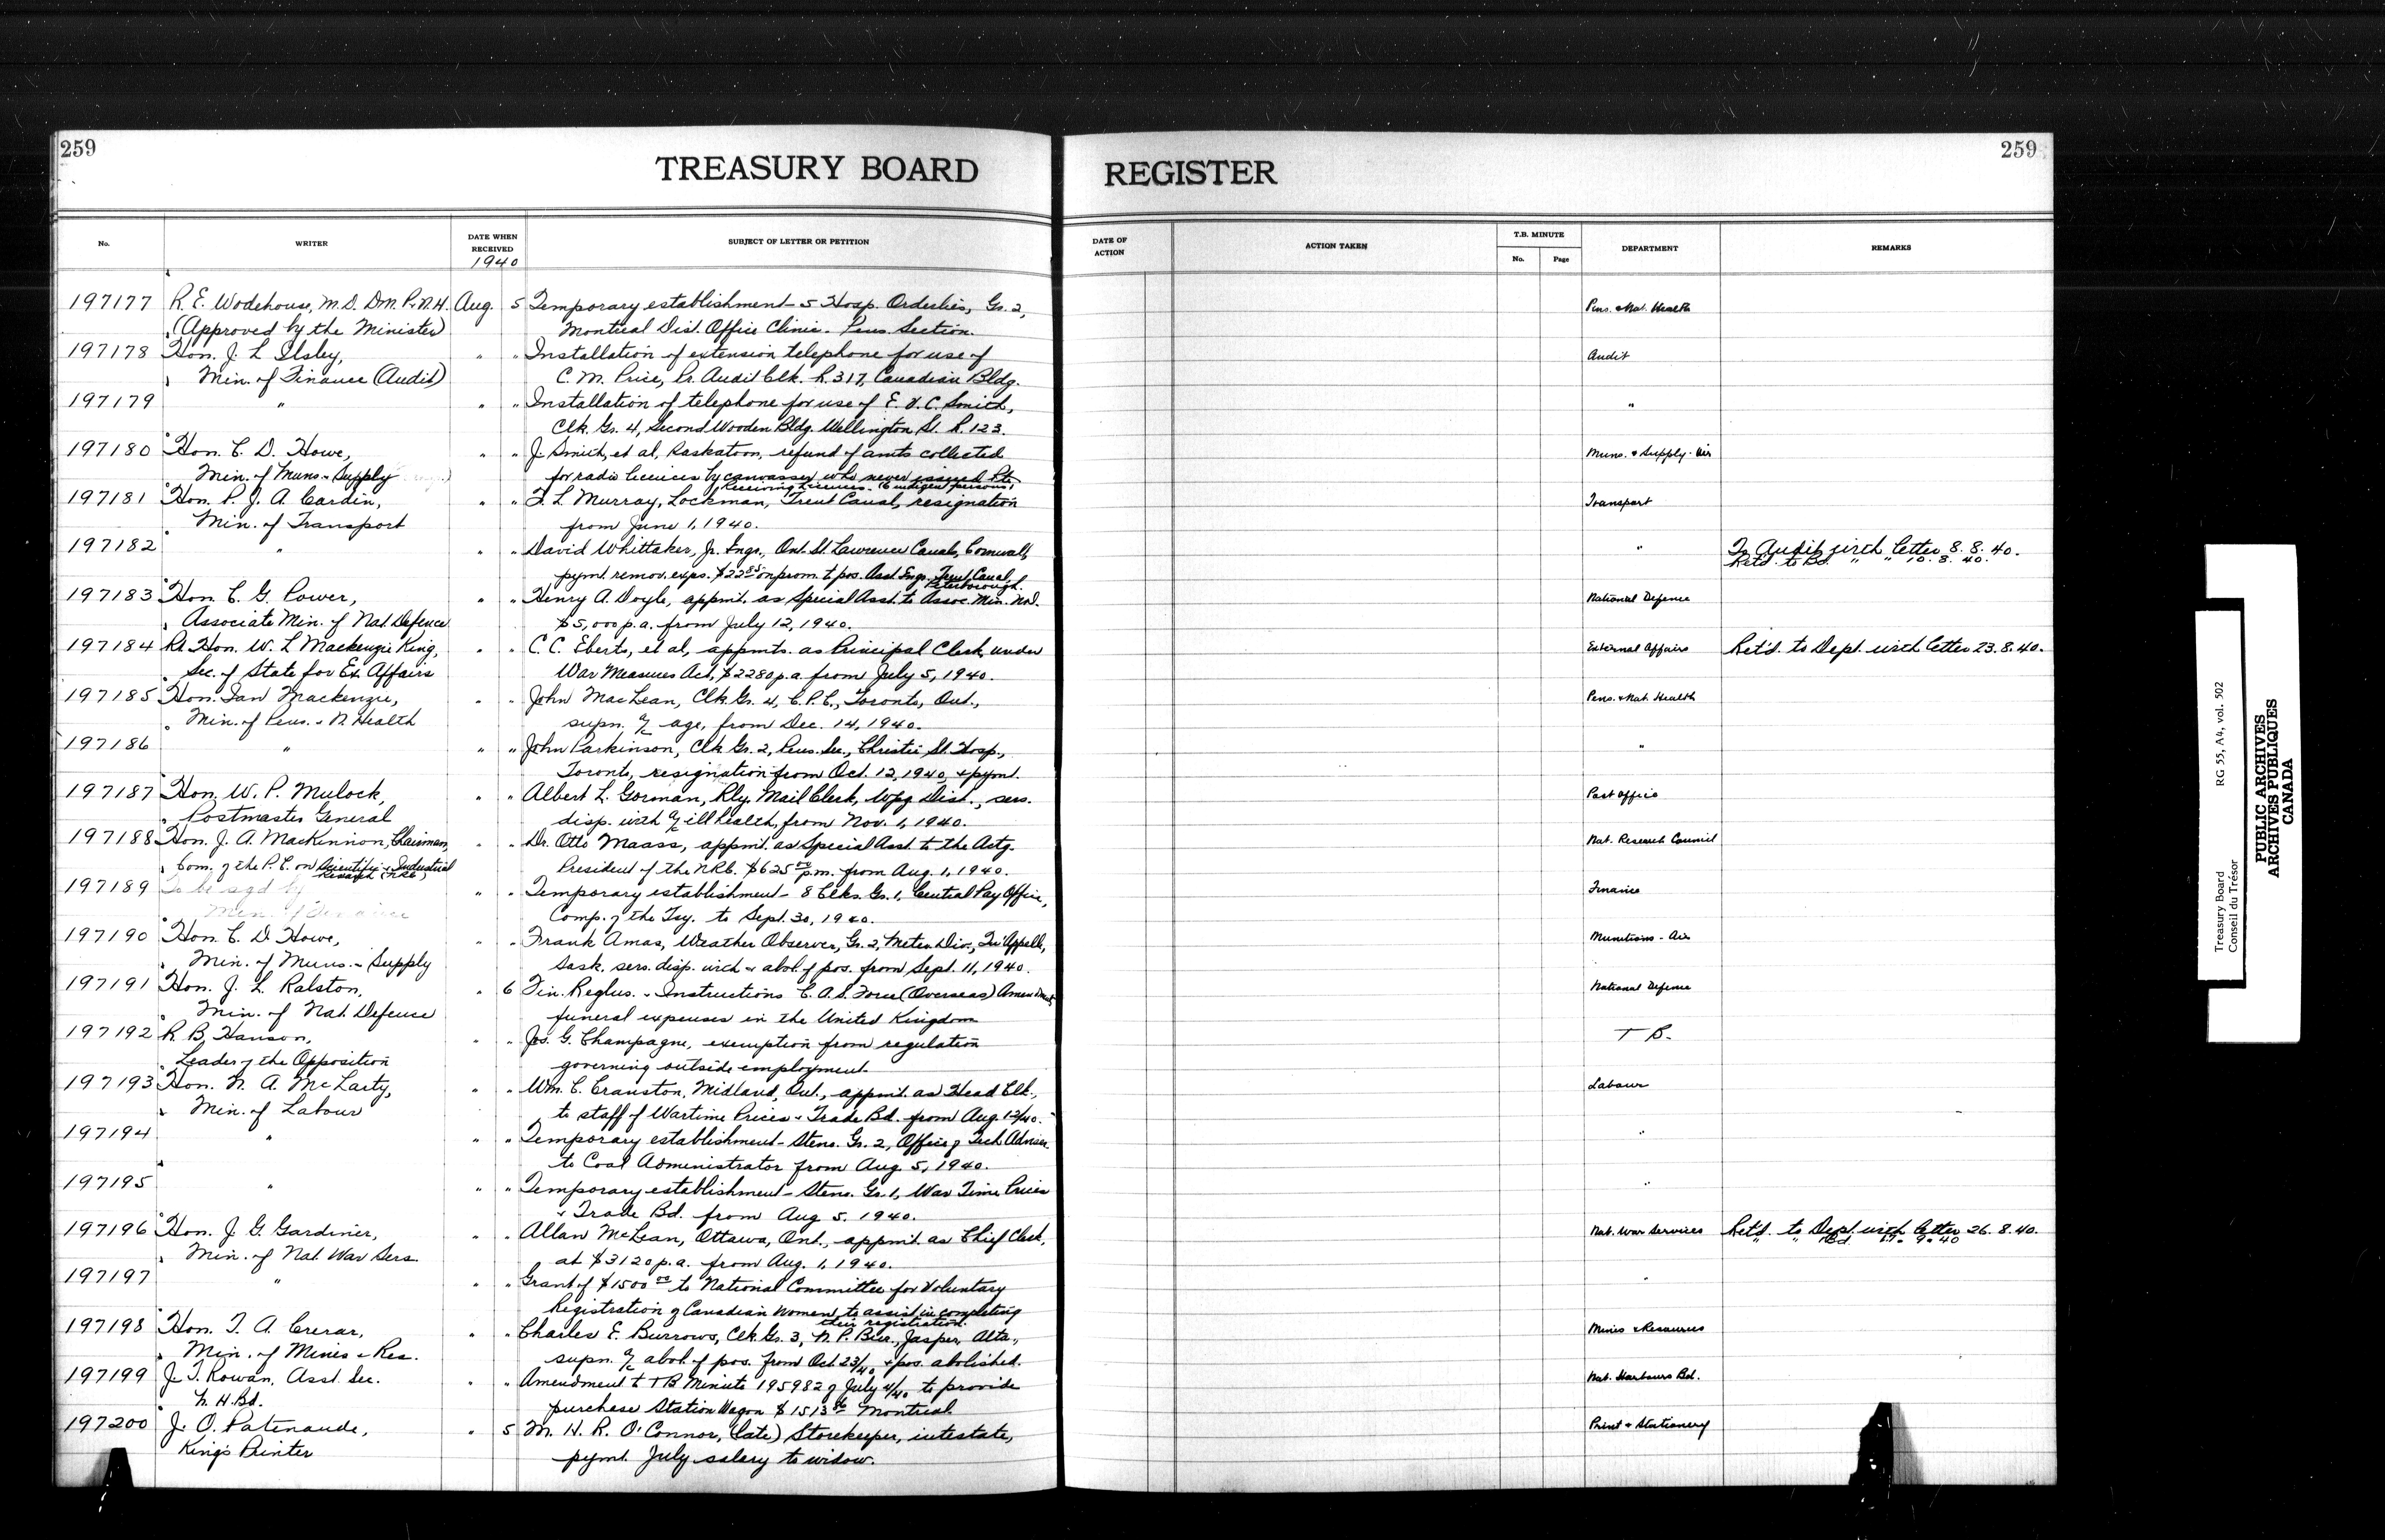 259
259
TREASURY BOARD REGISTER
No.
WRITER
DATE WHEN RECEIVED
1940
SUBJECT OF LETTER OR PETITION
DATE OF ACTION
ACTION TAKEN
T.B. MINUTE
No.
Page
DEPARTMENT
REMARKS
197177 R. E. Wodehouse, M.D. D.M. P.&N.H. Aug. 5 Temporary establishment - 5 Hosp. Orderlies, Gr. 2, Pens. & Nat. Health
(Approved by the Minister) Montreal Dist. Office Clinic - Pens. Section.
197178 Hon. J. L. Ilsley, " " Installation of extension telephone for use of Audit
Min. of Finance (Audit) C. M. Price, Pr. Audit Clk. R. 317, Canadian Bldg.
197179 " " " Installation of telephone for use of E. V. C. Smith, "
Clk. Gr. 4, Second Wooden Bldg. Wellington St. R. 123.
197180 Hon. C. D. Howe, " " J. Smith, et al, Saskatoon, refund of amts collected Muns. & Supply - Air
Min. of Muns. & Supply for radio licences by canvasser who never issued Pte.
Receiving Licences - (6 indigent persons)
197181 Hon. P. J. A. Cardin, " " T. L. Murray, Lockman, Trent Canal, resignation Transport
Min. of Transport from June 1, 1940.
197182 " " " David Whittaker, Jr. Engr., Ont. St. Lawrence Canals, Cornwall, " To Audit with letter 8. 8. 40.
pymt. remov. exps. $22.85 on prom. to pos. Asst. Engr. Trent Canal, Ret'd. to Bd. " " 10. 8. 40.
Peterborough.
197183 Hon. C. G. Power, " " Henry A. Doyle, appmt. as Special Asst. to Assoc. Min. N.D. National Defence
Associate Min. of Nat. Defence $5,000 p.a. from July 12, 1940.
197184 Rt. Hon. W. L. Mackenzie King, " " C. C. Eberts, et al, appmts. as Principal Clerk under External Affairs Ret'd. to Dept. with letter 23. 8. 40.
Sec. of State for Ex. Affairs War Measures Act, $2280 p.a. from July 5, 1940.
197185 Hon. Ian Mackenzie, " " John MacLean, Clk. Gr. 4, C.P.C., Toronto, Ont., Pens. & Nat. Health
Min. of Pens. & N. Health supn. a/c age, from Dec. 14, 1940.
197186 " " " John Parkinson, Clk. Gr. 2, Pens. Sec., Christie St. Hosp., "
Toronto, resignation from Oct. 12, 1940, & pymt.
197187 Hon. W. P. Mulock, " " Albert L. Gorman, Rly. Mail Clerk, Wpg. Dist., sers. Post Office
Postmaster General disp. with a/c ill health, from Nov. 1, 1940.
197188 Hon. J. A. MacKinnon, Chairman, " " Dr. Otto Maass, appmt. as Special Asst. to the Actg. Nat. Research Council
Com. of the P.C. on Scientific & Industrial President of the N.R.C. $625.00 p.m. from Aug. 1, 1940.
Research (NRC)
197189 To be sgd by " " Temporary establishment - 8 Clks. Gr. 1, Central Pay Office, Finance
Min. of Finance Comp. of the Tsy. to Sept. 30, 1940.
197190 Hon. C. D. Howe, " " Frank Amas, Weather Observer, Gr. 2, Meteor. Div., Qu'Appelle, Munitions - Air
Min. of Muns. & Supply Sask. sers. disp. with & abol. of pos. from Sept. 11, 1940.
197191 Hon. J. L. Ralston, " 6 Fin. Reglns. & Instructions C.A.S. Force (Overseas) Amendment National Defence
Min. of Nat. Defence funeral expenses in the United Kingdom
197192 R. B. Hanson, " " Jos. G. Champagne, exemption from regulation T B.
Leader of the Opposition governing outside employment.
197193 Hon. N. A. McLarty, " " Wm. C. Cranston, Midland, Ont., appmt. as Head Clk., Labour
Min. of Labour to staff of Wartime Prices & Trade Bd. from Aug. 12/40.
197194 " " " Temporary establishment - Steno. Gr. 2, Office of Tech. Adviser "
to Coal Administrator from Aug 5, 1940.
197195 " " " Temporary establishment - Steno. Gr. 1, War Time Prices "
& Trade Bd. from Aug 5, 1940.
197196 Hon. J. G. Gardiner, " " Allan McLean, Ottawa, Ont., appmt. as Chief Clerk, Nat. War Services Ret'd. to Dept. with letter 26. 8. 40.
Min. of Nat. War Sers. at $3120 p.a. from Aug. 1, 1940. " " Bd. 17. 9. 40
197197 " " " Grant of $1500.00 to National Committee for Voluntary "
Registration of Canadian Women to assist in completing
their registration.
197198 Hon. T. A. Crerar, " " Charles E. Burrows, Clk. Gr. 3, N. P. Bur., Jasper, Alta., Mines & Resources
Min. of Mines & Res. supn. a/c abol. of pos. from Oct. 23/40 & pos. abolished.
197199 J. T. Rowan, Asst. Sec. " " Amendment to TB Minute 195982 of July 4/40 to provide Nat. Harbours Bd.
N. H. Bd. purchase Station Wagon $1513 Montreal
197200 J. O. Patenaude, " 5 M. H. R. O'Connor, (late) Storekeeper, intestate, Print & Stationery
King's Printer pymt. July salary to widow.
Treasury Board RG 55, A4, vol. 502
Conseil du Trésor
PUBLIC ARCHIVES
ARCHIVES PUBLIQUES
CANADA